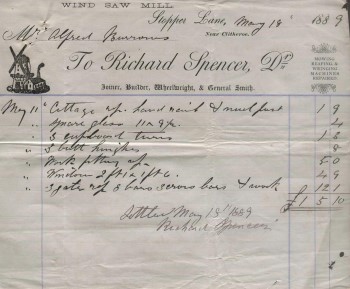 WIND SAW MILL
Stopper Lane, May 18 1889
Near Clitheroe.
Mr Alfred Burrows
To Richard Spencer, Dr.
Joiner, Builder, Wheelwright, & General Smith.
MOWING,
REAPING &
WRINGING
MACHINES
REPAIRED
May 11 Cottage rep. hand rail & 1 9
" Square glass 4
" 3 cupboard turns 1 6
" 3 butt hinges 8
" Work 5 0
" Window 2ft 4 9
" 3 gate rep 8 bars & work 12 1
£ 1 5 10
Settled May 18th 1889
Richard Spencer